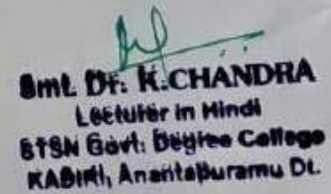 Smt. Dr. K.CHANDRA
Lecturer in Hindi
STSN Govt. Degree College
KADIRI, Anantapuramu Dt.